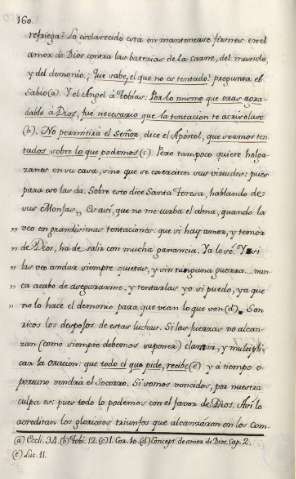 160.
refriega? Lo esclarecido esta en mantenerse firmes en el
amor de Dios contra las baterias de la carne, del mundo,
y del demonio. ¿Que sabe, el que no es tentado? pregunta el
Sabio (a). Y el Angel á Tobias: Por lo mismo que eras agra-
dable á Dios, fue necesario que la tentacion te acrisolare
(b). No permitirá el Señor, dice el Apostol, que seamos ten-
tados sobre lo que podemos (c). Pero tampoco quiere holga-
zanes en su casa, sino que se exerciten sus virtudes: pues
para eso las da. Sobre esto dice Santa Teresa, hablando de
sus Monjas: que no me turba el alma, quando la
„ veo en grandisimas tentaciones: que si hay amor, y temor
„ de Dios, ha de salir con mucha ganancia. Ya lo sé. Y si
„ las veo andar siempre quietas, y sin ninguna guerra... nun-
„ ca acabo de asegurarme, y tentarlas yo si puedo, ya que
„ no lo hace el demonio para que vean lo que son (d). Son
ricos los despojos de estas luchas. Si las fuerzas no alcan-
zan (como siempre debemos suponer) clamen, y multipli-
can la oracion: que todo el que pide, recibe (e) y á tiempo o-
portuno vendrá el socorro. Si somos vencidos, por nuestra
culpa es: pues todo lo podemos con el favor de Dios. Asi lo
acreditan los gloriosos triunfos que alcanzaron en los Com-
(a) Eccli. 34. (b) Tobi. 12. (c) 1. Cor. 10. (d) Concept. de amor de Dios, Cap. 2.
(e) Luc. 11.